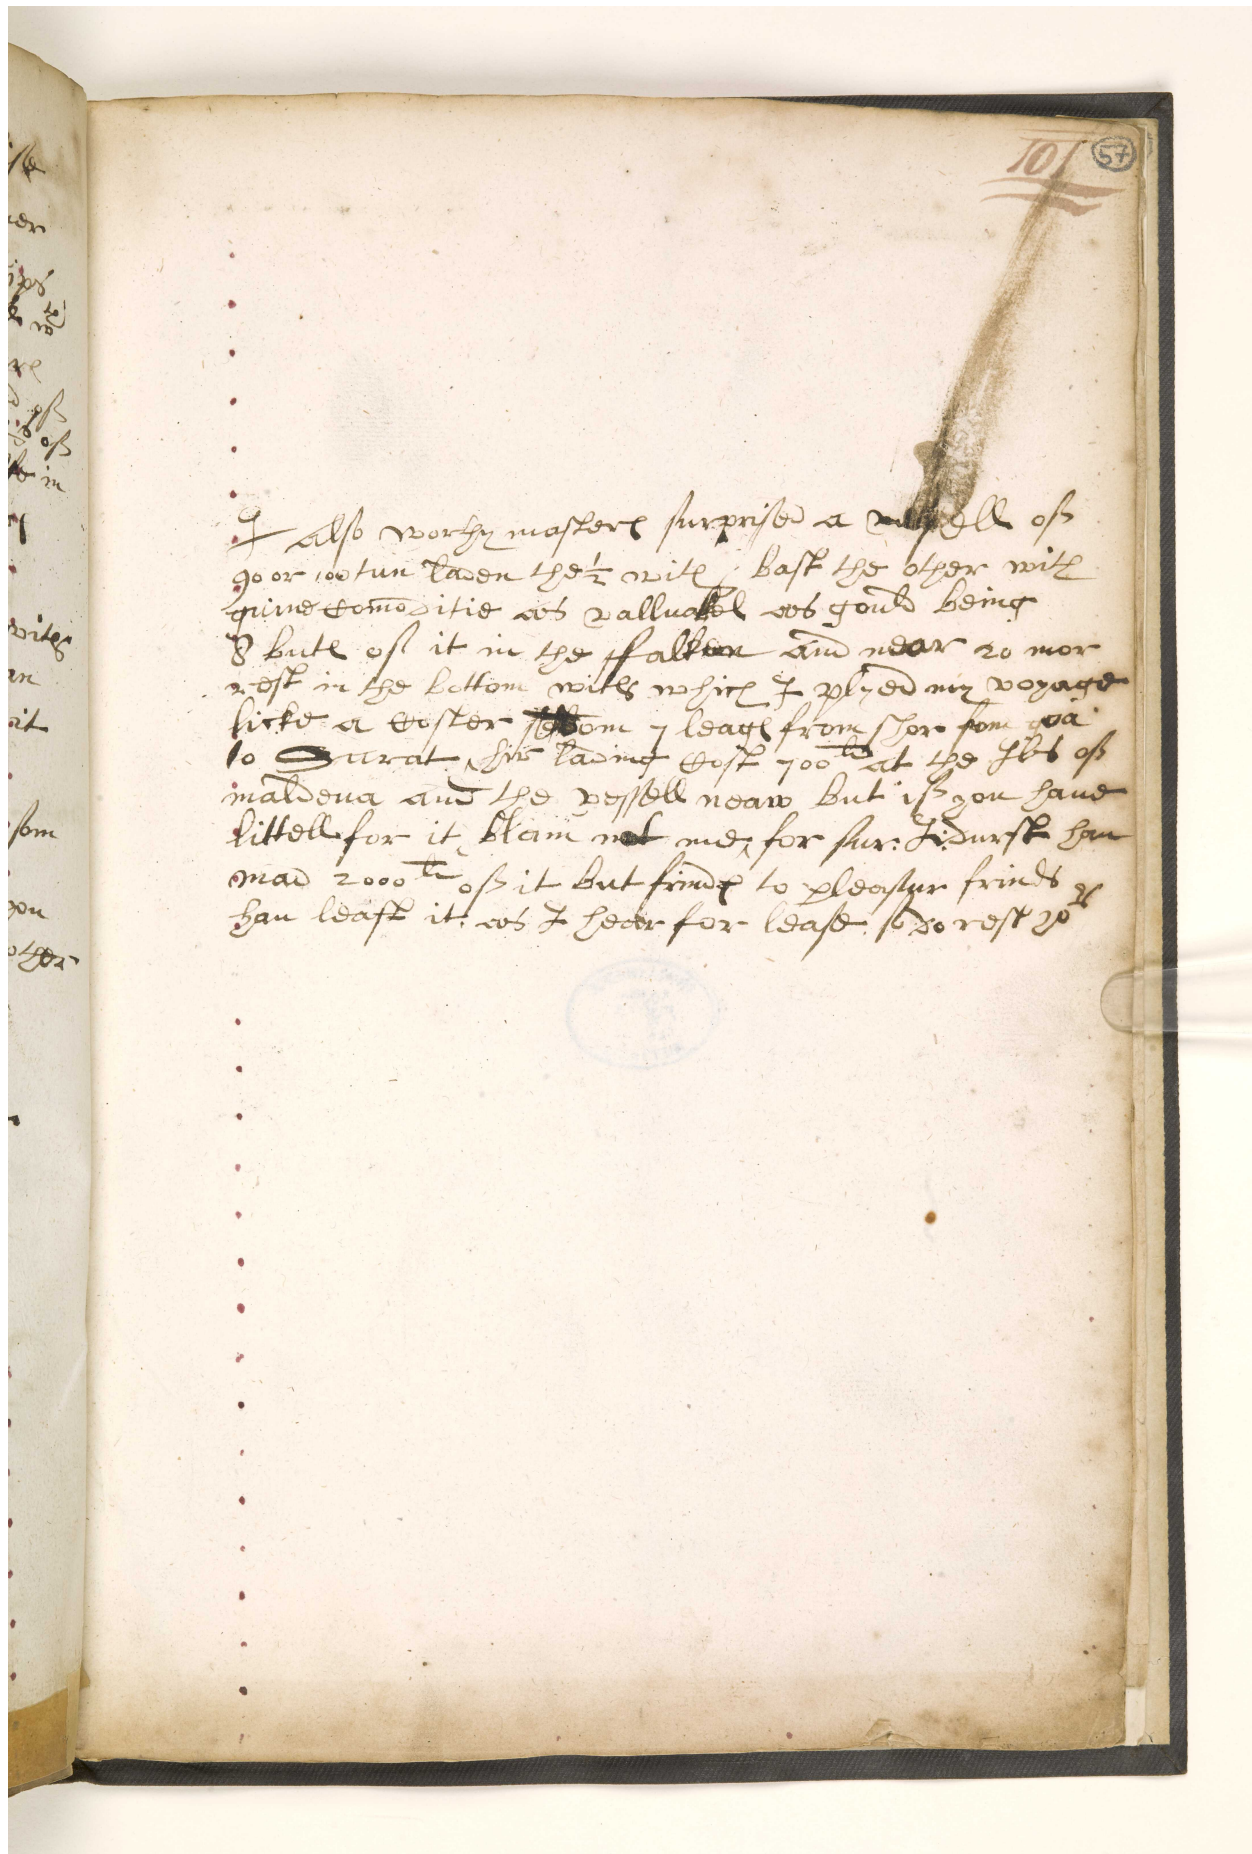 101 57
Also worthy masters surprised a vessell off
90 or 100 tun laden the ½ with bast the other with
guine comoditie as valluabel as gould being
8 buts off it in the ffalken and near 20 mor
rest in the bottom with which I plyed my voyage
licke a Coster 7 leags from shor from goa
to Surat, hir lading Cost 700 li at the Iles off
maldeua and the vessell neaw but iff you haue
littell for it, blam not me, for sur: I: durst hau
mad 2000 li off it but frinds to pleasur frinds
hau leaft it: as I hear for lease, so do rest yo rs